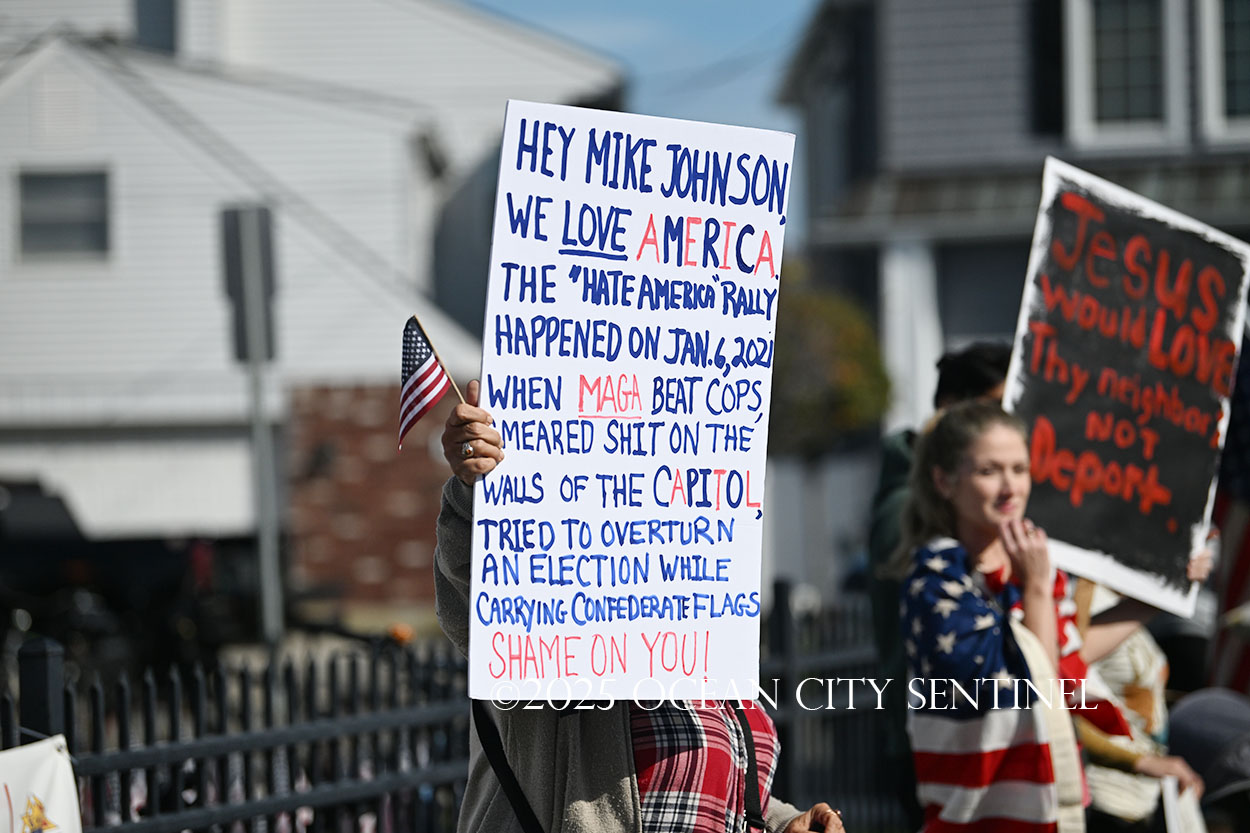 HEY MIKE JOHNSON,
WE LOVE AMERICA.
THE "HATE AMERICA" RALLY
HAPPENED ON JAN. 6, 2021
WHEN MAGA BEAT COPS,
SMEARED SHIT ON THE
WALLS OF THE CAPITOL,
TRIED TO OVERTURN
AN ELECTION WHILE
CARRYING CONFEDERATE FLAGS
SHAME ON YOU!
Jesus
would LOVE
Thy neighbor
NOT
Deport.
©2025 OCEAN CITY SENTINEL